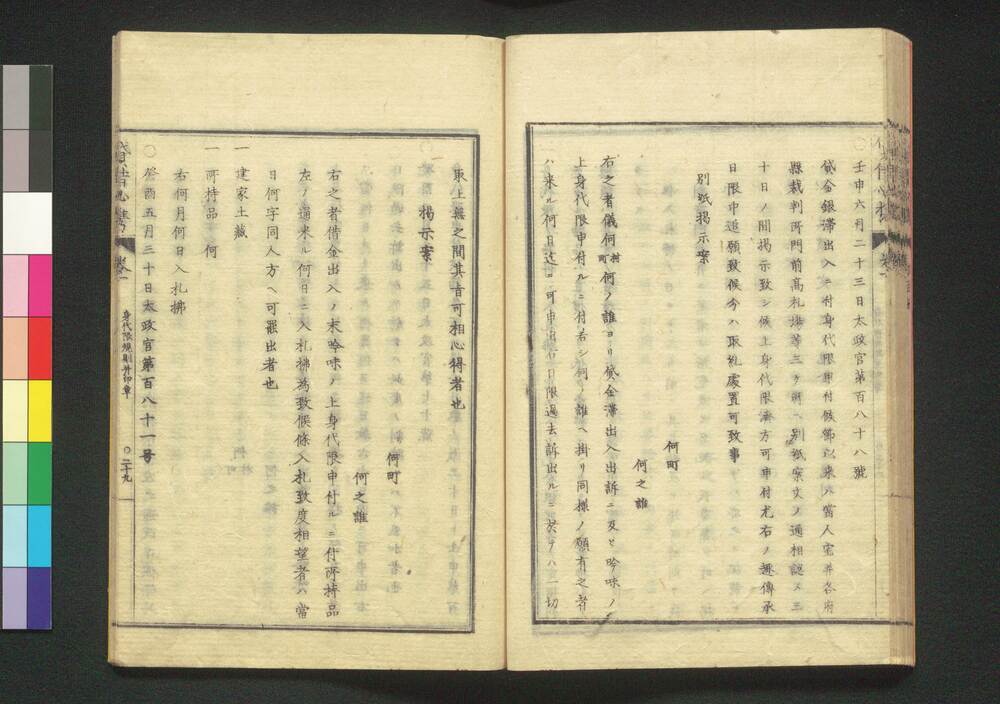 ○壬申六月二十三日太政官第百八十八號
貸金銀滯出入ニ付身代限申付候節以来ハ當人宅並各府
縣裁判所門前高札場等三ヶ所ヘ別紙案文ノ通相認メ三
十日ノ間掲示致シ候上身代限濟方可申付尤右ノ趣傳承
日限中追願致候分ハ取糺處置可致事
別紙掲示案
何町
何之誰
右之者儀何村町何ノ誰ヨリ貸金滯出入出訴ニ及ヒ吟味ノ
上身代限申付ルニ付若シ何ノ誰ヘ掛リ同様ノ願有之者
ハ来ル何日迄ニ可申出右日限過去訴出ルニ於テハ一切
取上無之間其旨可相心得者也
掲示案
何町
何之誰
右之者借金出入ノ末吟味ノ上身代限申付ルニ付所持品
左ノ通来ル何日ニ入札拂為致候條入札致度相望者ハ當
日何字同人方ヘ可罷出者也
一建家土藏
一所持品 何
右何月何日入札拂
○癸酉五月三十日太政官第百八十一号
身代限規則并印章
○二十九